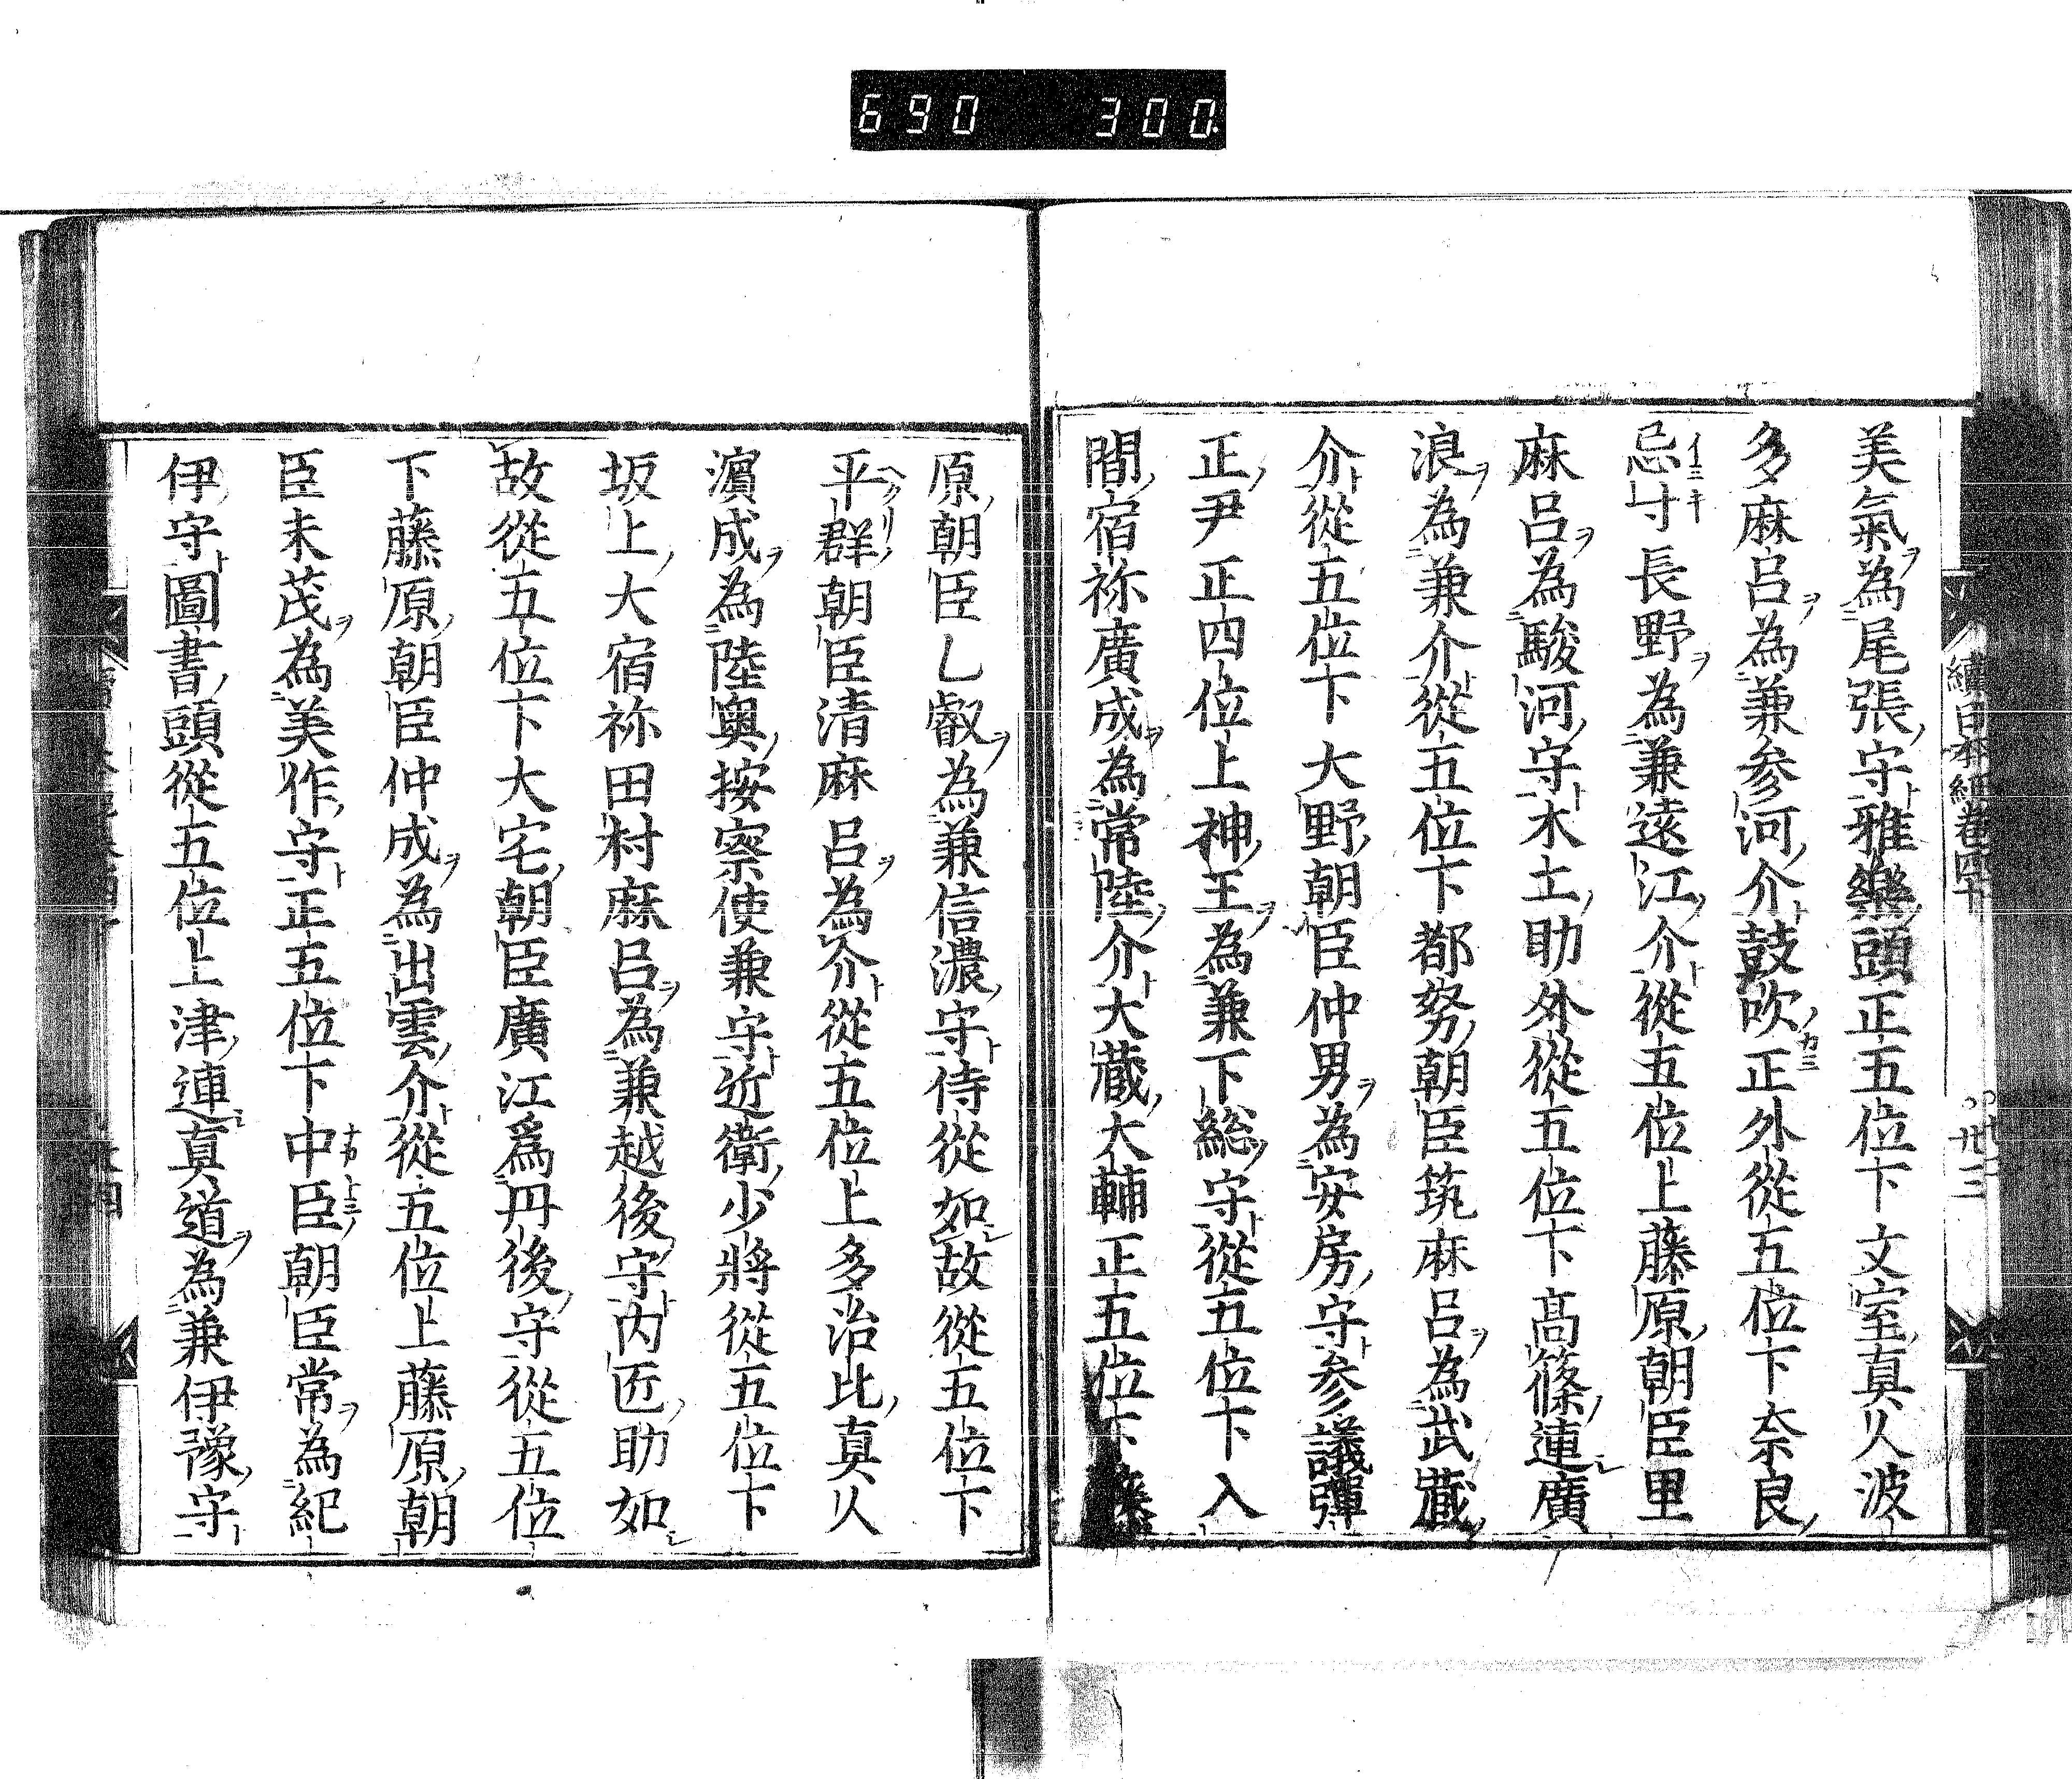 690 300
續日本紀卷四十
卅三
美氣為尾張守雅樂頭正五位下文室真人波
多麻呂為兼参河介鼓吹正外從五位下奈良
忌寸長野為兼遠江介從五位上藤原朝臣里
麻呂為駿河守木土助外從五位下髙篠連廣
浪為兼介從五位下都努朝臣筑麻呂為武藏
介從五位下大野朝臣仲男為安房守参議彈
正尹正四位上神王為兼下総守從五位下入
間宿祢廣成為常陸介大藏大輔正五位下藤
原朝臣乙叡為兼信濃守侍從如故從五位下
平群朝臣清麻呂為介從五位上多治比真人
濵成為陸奥按察使兼守近衛少將從五位下
坂上大宿祢田村麻呂為兼越後守内匠助如
故從五位下大宅朝臣廣江爲丹後守從五位
下藤原朝臣仲成為出雲介從五位上藤原朝
臣末茂為美作守正五位下中臣朝臣常為紀
伊守圖書頭從五位上津連真道為兼伊豫守